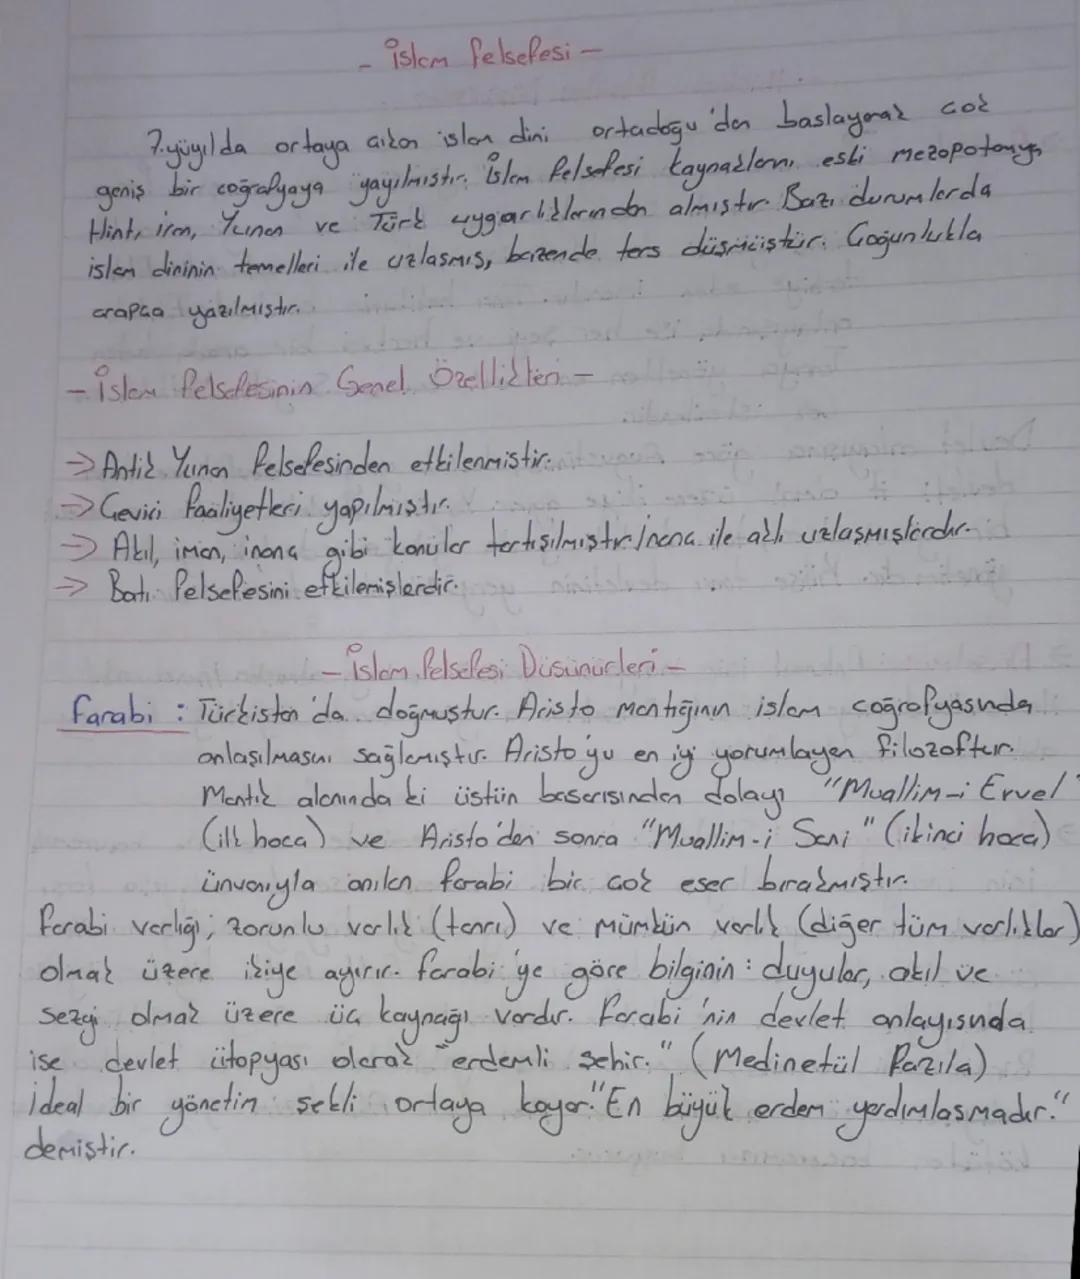 - İslam felsefesi -
7.yüyılda ortaya çıkan islam dini ortadoğu'dan başlayarak çok
geniş bir coğrafyaya yayılmıştır. İslam felsefesi kaynaklarını eski mezopotamya,
Hint, iran, Yunan ve Türk uygarlıklarından almıştır. Bazı durumlarda
islam dininin temelleri ile uzlaşmış, bazende ters düşmüştür. Çoğunlukla
arapça yazılmıştır.
- İslam felsefesinin Genel Özellikleri -
→ Antik Yunan felsefesinden etkilenmiştir.
→ Çeviri faaliyetleri yapılmıştır.
→ Akıl, iman, inanç gibi konular tartışılmıştır. İnanç ile aklı uzlaşmışlardır.
→ Batı felsefesini etkilemişlerdir.
- İslam felsefesi Düşünürleri -
farabi : Türkistan'da doğmuştur. Aristo mantığının islam coğrafyasında
anlaşılmasını sağlamıştır. Aristo'yu en iyi yorumlayan filozoftur.
Mantık alanında ki üstün başarısından dolayı "Muallim-i Evvel"
(ilk hoca) ve Aristo'dan sonra "Muallim-i Sani" (ikinci hoca)
ünvanıyla anılan farabi bir çok eser bırakmıştır.
farabi varlığı; zorunlu varlık (tanrı) ve mümkün varlık (diğer tüm varlıklar)
olmak üzere ikiye ayırır. farabi'ye göre bilginin : duyular, akıl ve
sezgi olmak üzere üç kaynağı vardır. farabi'nin devlet anlayışında
ise devlet ütopyası olarak "erdemli şehir." (Medinetül fazıla)
ideal bir yönetin şekli ortaya koyar. "En büyük erdem yardımlaşmadır."
demiştir.